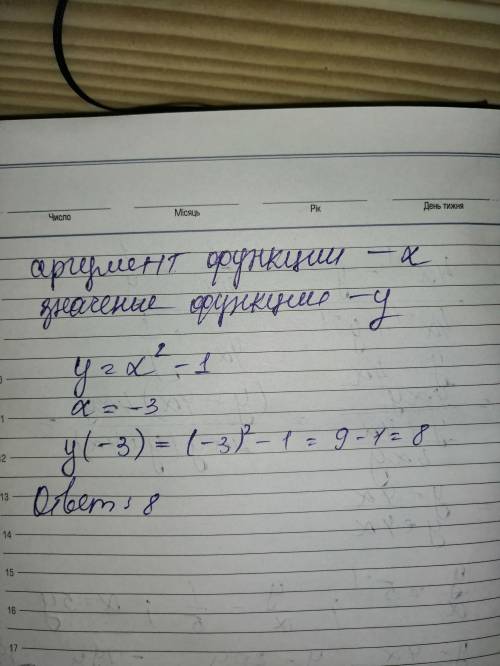 Число Місяць Рік День тижня
аргумент функции - x
значение функции - y
y = x² - 1
x = -3
y(-3) = (-3)² - 1 = 9 - 1 = 8
12
Ответ: 8
13
14
15
16
17